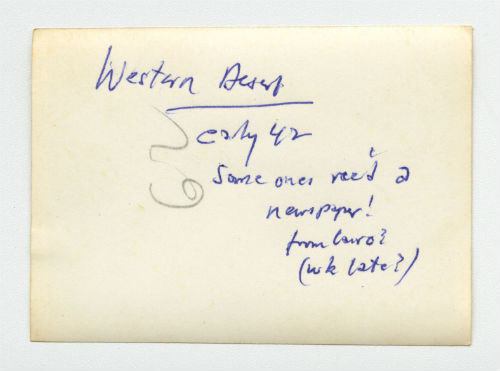 Western Desert
early 42
Some ones rec'd a
newspaper!
from Cairo?
(wk late?)